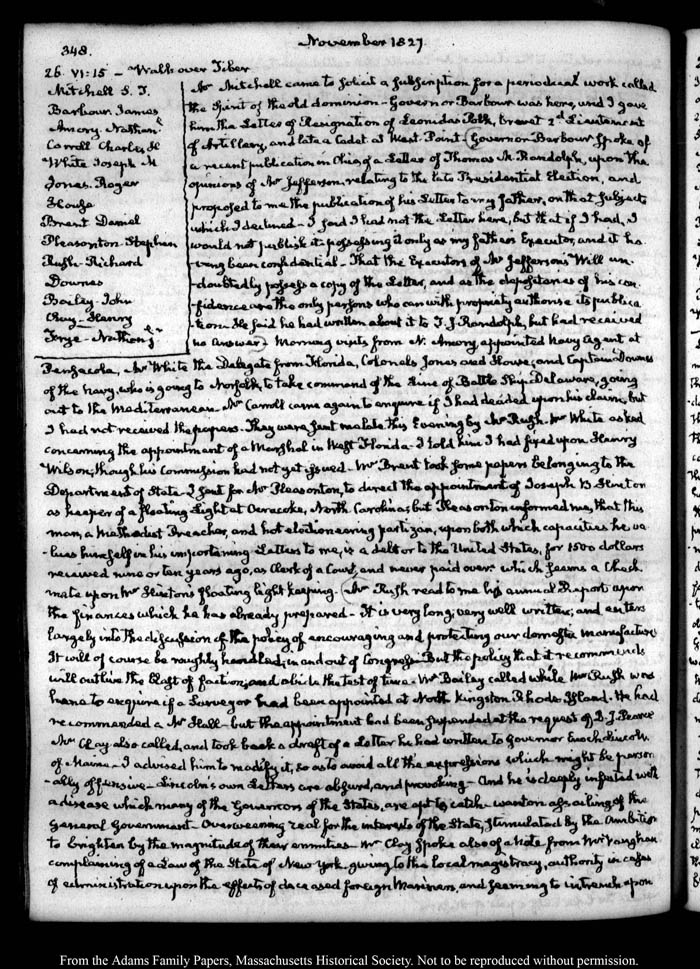 348.
November 1827.
26. VI:15 – Walk over Tiber
Mitchell S. T.
Barbour James
Amory Nathanl.
Carroll Charles H
White Joseph M
Jones. Roger
House
Brent Daniel
Pleasonton Stephen
Rush Richard
Downes
Bailey John
Clay Henry
Frye Nathanl. Jr.
Mr Mitchell came to solicit a subscription for a periodical work called
the Spirit of the old dominion – Governor Barbour was here, and I gave
him the Letter of Resignation of Leonidas Polk, brevet 2d. Lieutenant
of Artillery, and late a Cadet at West Point – Governor Barbour spoke of
a recent publication in Ohio, of a Letter of Thomas M. Randolph, upon the
opinions of Mr Jefferson, relating to the late Presidential Election, and
proposed to me the publication of his Letter to my father, on that subject,
which I declined – I said I had not the Letter here, but that if I had, I
would not publish it; possessing it only as my father's Executor, and it ha-
-ving been confidential – That the Executors of Mr Jefferson's Will un-
-doubtedly possess a copy of the Letter, and as the depositaries of his con-
-fidence are the only persons who can with propriety authorise its publica-
-tion. He said he had written about it to T. J. Randolph, but had received
no answer. Morning visits from N. Amory, appointed Navy Agent at
Pensacola, Mr White the Delegate from Florida, Colonels Jones and House, and Captain Downes
of the Navy, who is going to Norfolk, to take command of the Line of Battle Ship Delaware, going
out to the Mediterranean – Mr Carroll came again to enquire if I had decided upon his claim, but
I had not received the papers. They were sent me late this Evening by Mr Rush. Mr White asked
concerning the appointment of a Marshal in West Florida – I told him I had fixed upon Henry
Wilson, though his Commission had not yet issued – Mr Brent took some papers belonging to the
Department of State – I sent for Mr Pleasonton, to direct the appointment of Joseph B
as keeper of a floating Light at Ocracoke, North Carolina; but Pleasonton informed me, that this
man, a Methodist Preacher, and hot electioneering partizan, upon both which capacities he va-
-lues himself in his importuning Letters to me, is a debtor to the United States, for 1500 dollars
received nine or ten years ago, as Clerk of a Court, and never paid over: which seems a Check-
mate upon Mr floating light keeping. Mr Rush read to me his annual Report upon
the finances which he has already prepared – It is very long; very well written; and enters
largely into the discussion of the policy of encouraging and protecting our domestic manufactures
It will of course be roughly handled, in and out of Congress. But the policy that it recommends
will outlive the blast of faction, and abide the test of time – Mr Bailey called while Mr Rush was
here to enquire if a Surveyor had been appointed at North Kingston Rhode Island. He had
recommended a Mr Hall – but the appointment had been suspended at the request of D. J. Pearce
Mr Clay also called, and took back a draft of a Letter he had written to Governor Enoch Lincoln
of Maine – I advised him to modify it, so as to avoid all the expressions which might be person-
-ally offensive – Lincoln's own Letters are absurd, and provoking – And he is deeply infested with
a disease which many of the Governors of the States, are apt to catch – wanton assailing of the
General Government – Overweening zeal for the interests of the State, stimulated by the Ambition
to brighten by the magnitude of their enmities – Mr Clay spoke also of a Note from Mr Vaughan
complaining of a Law of the State of New York giving to the local magistracy, authority in cases
of administration upon the effects of deceased foreign Mariners, and seeming to intrench upon
From the Adams Family Papers, Massachusetts Historical Society. Not to be reproduced without permission.